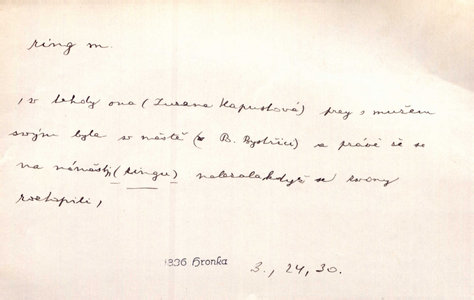 ring m.
, v tehdy ona (Zuzana Kapustová) prey s mužem
svým byla v městě (v B. Bystřici) a právě se
na náměstj (ringu) nabrala když se zvony
roztopili,
1836 Hronka 3., 24, 30.